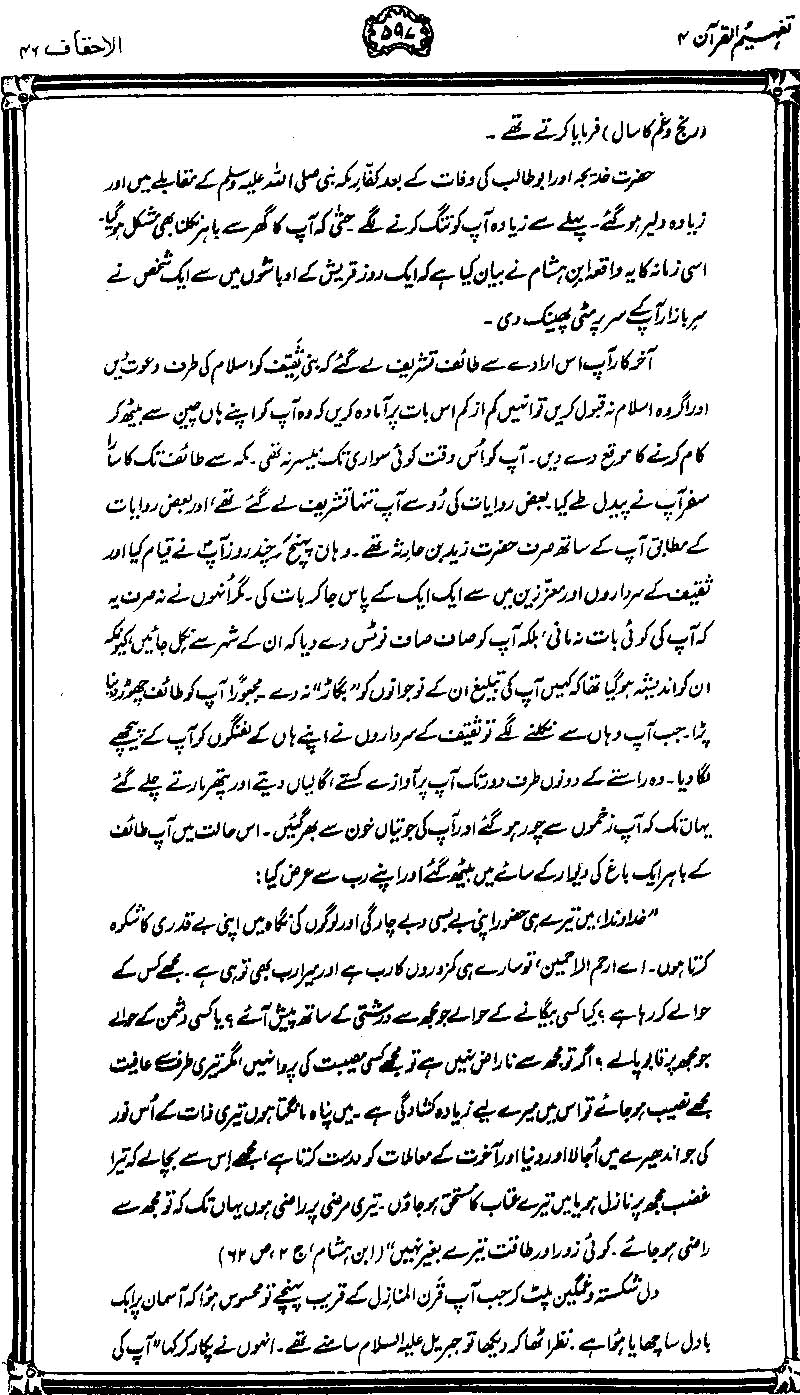 تفہیم القرآن ۴
۵۹۷
الاحقاف ۴۶
(رنج و غم کا سال) فرمایا کرتے تھے۔
حضرت خدیجہ اور ابو طالب کی وفات کے بعد کفارِ مکہ نبی صلی اللہ علیہ وسلم کے مقابلے میں اور
زیادہ دلیر ہو گئے۔ پہلے سے زیادہ آپ کو تنگ کرنے لگے حتیٰ کہ آپ کا گھر سے باہر نکلنا بھی مشکل ہو گیا۔
اسی زمانہ کا یہ واقعہ ابن ہشام نے بیان کیا ہے کہ ایک روز قریش کے اوباشوں میں سے ایک شخص نے
سرِ بازار آپ کے سر پر مٹی پھینک دی۔
آخر کار آپ اس ارادے سے طائف تشریف لے گئے کہ بنی ثَقِیف کو اسلام کی طرف دعوت دیں
اور اگر وہ اسلام نہ قبول کریں تو انہیں کم از کم اس بات پر آمادہ کریں کہ وہ آپ کو اپنے ہاں چین سے بیٹھ کر
کام کرنے کا موقع دے دیں۔ آپ کو اُس وقت کوئی سواری تک میسر نہ تھی۔ مکہ سے طائف تک کا سارا
سفر آپ نے پیدل طے کیا۔ بعض روایات کی رُو سے آپ تنہا تشریف لے گئے تھے، اور بعض روایات
کے مطابق آپ کے ساتھ صرف حضرت زید بن حارثہ تھے۔ وہاں پہنچ کر چند روز آپ نے قیام کیا اور
ثقیف کے سرداروں اور معززین میں سے ایک ایک کے پاس جا کر بات کی۔ مگر اُنہوں نے نہ صرف یہ
کہ آپ کی کوئی بات نہ مانی، بلکہ آپ کو صاف صاف نوٹس دے دیا کہ ان کے شہر سے نکل جائیں، کیونکہ
ان کو اندیشہ ہو گیا تھا کہ کہیں آپ کی تبلیغ ان کے نوجوانوں کو "بگاڑ" نہ دے۔ مجبوراً آپ کو طائف چھوڑ دینا
پڑا۔ جب آپ وہاں سے نکلنے لگے تو ثقیف کے سرداروں نے اپنے ہاں کے لفنگوں کو آپ کے پیچھے
لگا دیا۔ وہ راستے کے دونوں طرف دور تک آپ پر آوازے کستے، گالیاں دیتے اور پتھر مارتے چلے گئے
یہاں تک کہ آپ زخموں سے چور ہو گئے اور آپ کی جوتیاں خون سے بھر گئیں۔ اس حالت میں آپ طائف
کے باہر ایک باغ کی دیوار کے سائے میں بیٹھ گئے اور اپنے رب سے عرض کیا:
"خداوندا، میں تیرے ہی حضور اپنی بے بسی و بے چارگی اور لوگوں کی نگاہ میں اپنی بے قدری کا شکوہ
کرتا ہوں۔ اے ارحم الراحمین، تو سارے ہی کمزوروں کا رب ہے اور میرا رب بھی تو ہی ہے۔ مجھے کس کے
حوالے کر رہا ہے؟ کیا کسی بیگانے کے حوالے جو مجھ سے درشتی کے ساتھ پیش آئے؟ یا کسی دشمن کے حوالے
جو مجھ پر قابو پا لے؟ اگر تو مجھ سے ناراض نہیں ہے تو مجھے کسی مصیبت کی پروا نہیں، مگر تیری طرف سے عافیت
مجھے نصیب ہو جائے تو اس میں میرے لیے زیادہ کشادگی ہے۔ میں پناہ مانگتا ہوں تیری ذات کے اُس نور
کی جو اندھیرے میں اُجالا اور دنیا اور آخرت کے معاملات کو درست کرتا ہے، مجھے اِس سے بچا لے کہ تیرا
غضب مجھ پر نازل ہو یا میں تیرے عتاب کا مستحق ہو جاؤں۔ تیری مرضی پر راضی ہوں یہاں تک کہ تو مجھ سے
راضی ہو جائے۔ کوئی زور اور طاقت تیرے بغیر نہیں" (ابن ہشام، ج ۲، ص ۶۲)
دل شکستہ و غمگین پلٹ کر جب آپ قَرن المنازل کے قریب پہنچے تو محسوس ہُوا کہ آسمان پر ایک
بادل سا چھایا ہُوا ہے۔ نظر اٹھا کر دیکھا تو جبریل علیہ السلام سامنے تھے۔ انہوں نے پکار کر کہا "آپ کی